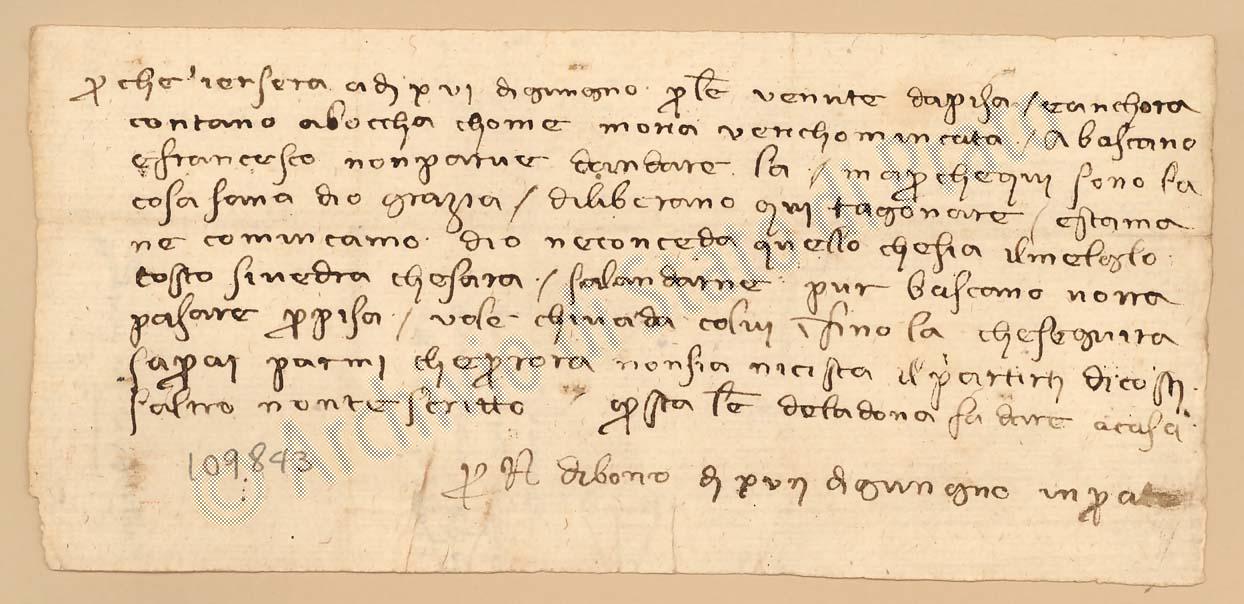 p che iersera a dì xvi di giungno p lre venute da pisa / e anchora
contano aboccha chome moria ve richominciata / A bascano
e francesco non parve da andare la / ma p che qui sono la
cosa sana dio grazia / diliberano qui ragonare / e stama
ne cominciamo dio ne conceda quello che sia il meleglo
tosto si vedra che sara / sal andarne pur bascano vorra
pasare p pisa / vole chi va da colui īfino la che seguira
saprai parmi che p ora non sia nicista il partirti di costì
s altro non te scritto qsta lre de la dona fa dare a casa
109843
p N di bono dì xvii di giungno in prato
© Archivio di Stato di Prato